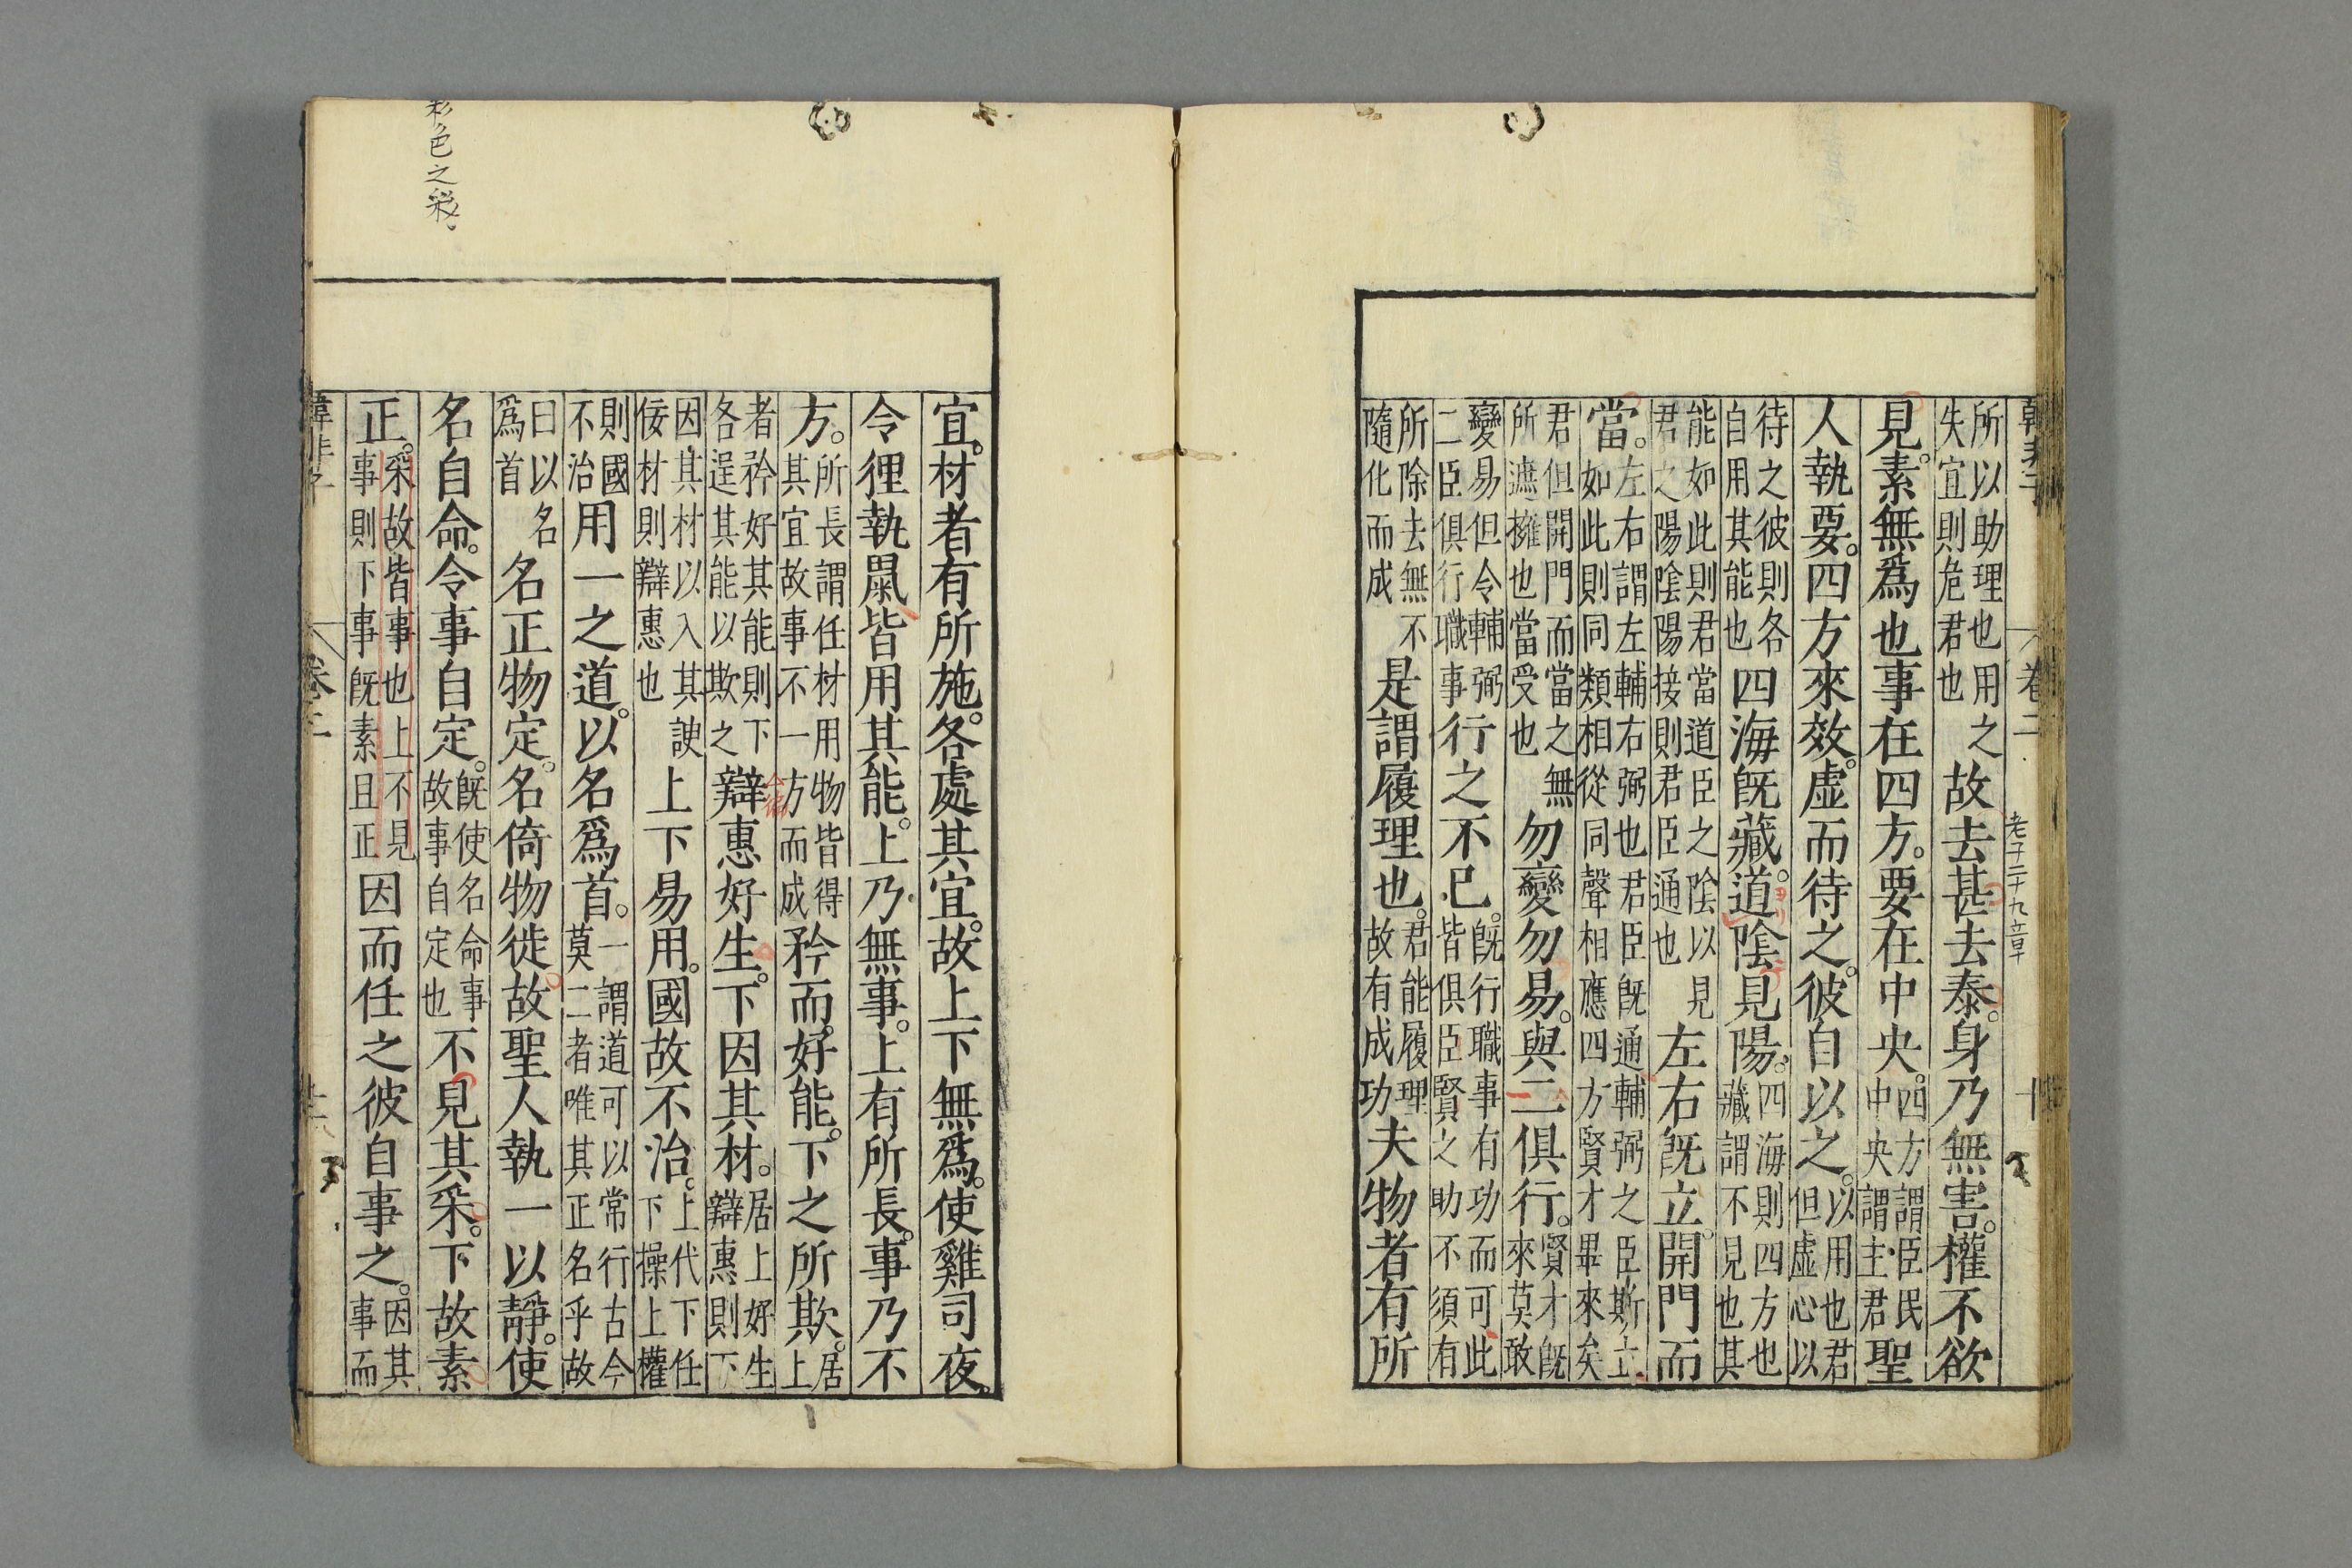 老子二十九章
所以助理也用之失宜則危君也故去甚去泰。身乃無害。權不欲
見。素無爲也事在四方。要在中央。四方謂臣民中央謂主君聖
人執要。四方來效。虛而待之。彼自以之。以用也君但虛心以
待之彼則各自用其能也四海旣藏。道陰見陽。四海則四方也藏謂不見也其
能如此則君當道臣之陰以見君之陽陰陽接則君臣通也左右旣立。開門而
當。左右謂左輔右弼也君臣旣通輔弼之臣斯立如此則同類相從同聲相應四方賢才畢來矣
君但開門而當之無所遮擁也當受也勿變勿易。與二俱行。賢才旣來莫敢
變易但令輔弼二臣俱行職事行之不已。旣行職事有功而可此皆俱臣賢之助不須有
所除去無不隨化而成是謂履理也。君能履理故有成功夫物者有所
宜。材者有所施。各處其宜。故上下無爲。使雞司夜。
令狸執鼠皆用其能。上乃無事。上有所長。事乃不
方。所長謂任材用物皆得其宜故事不一方而成矜而好能。下之所欺。居上
者矜好其能則下各逞其能以欺之辯惠好生。下因其材。居上好生辯惠則下
因其材以入其諛佞材則辯惠也上下易用。國故不治。上代下任下操上權
則國不治用一之道。以名爲首。一謂道可以常行古今莫二者唯其正名乎故
曰以名爲首名正物定。名倚物徙。故聖人執一以靜。使
名自命。令事自定。旣使名命事故事自定也不見其采。下故素
正。采故皆事也上不見事則下事旣素且正因而任之彼自事之。因其事而
彩色之彩、
卷二